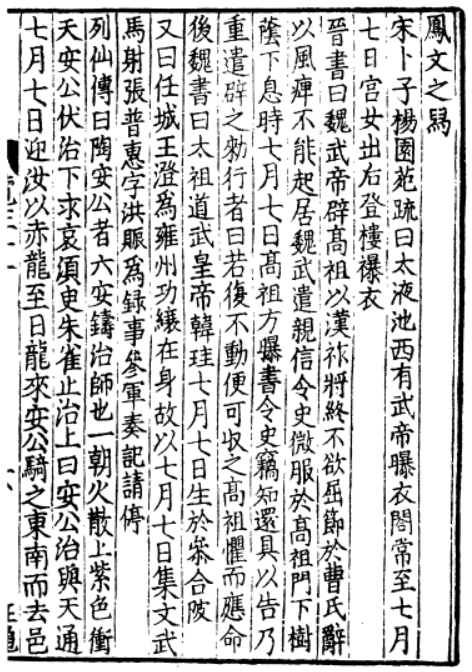 鳳文之舄
宋卜子楊園苑疏曰太液池西有武帝曝衣閣常至七月
七日宫女出后登樓㬥衣
晉書曰魏武帝辟髙祖以漢祚將終不欲屈節於曹氏辭
以風痺不能起居魏武遣親信令史微服於髙祖門下樹
蔭下息時七月七日髙祖方曝書令史竊知還具以告乃
重遣辟之勑行者曰若復不動便可収之髙祖懼而應命
後魏書曰太祖道武皇帝韓珪七月七日生於叅合陂
又曰任城王澄為雍州功縗在身故以七月七日集文武
馬射張普惠字洪賑為録事叅軍奏記請停
列仙傳曰陶安公者六安鑄治師也一朝火散上紫色衝
天安公伏治下求哀湏史朱雀止治上曰安公治與天通
七月七日迎汝以赤龍至日龍來安公騎之東南而去邑